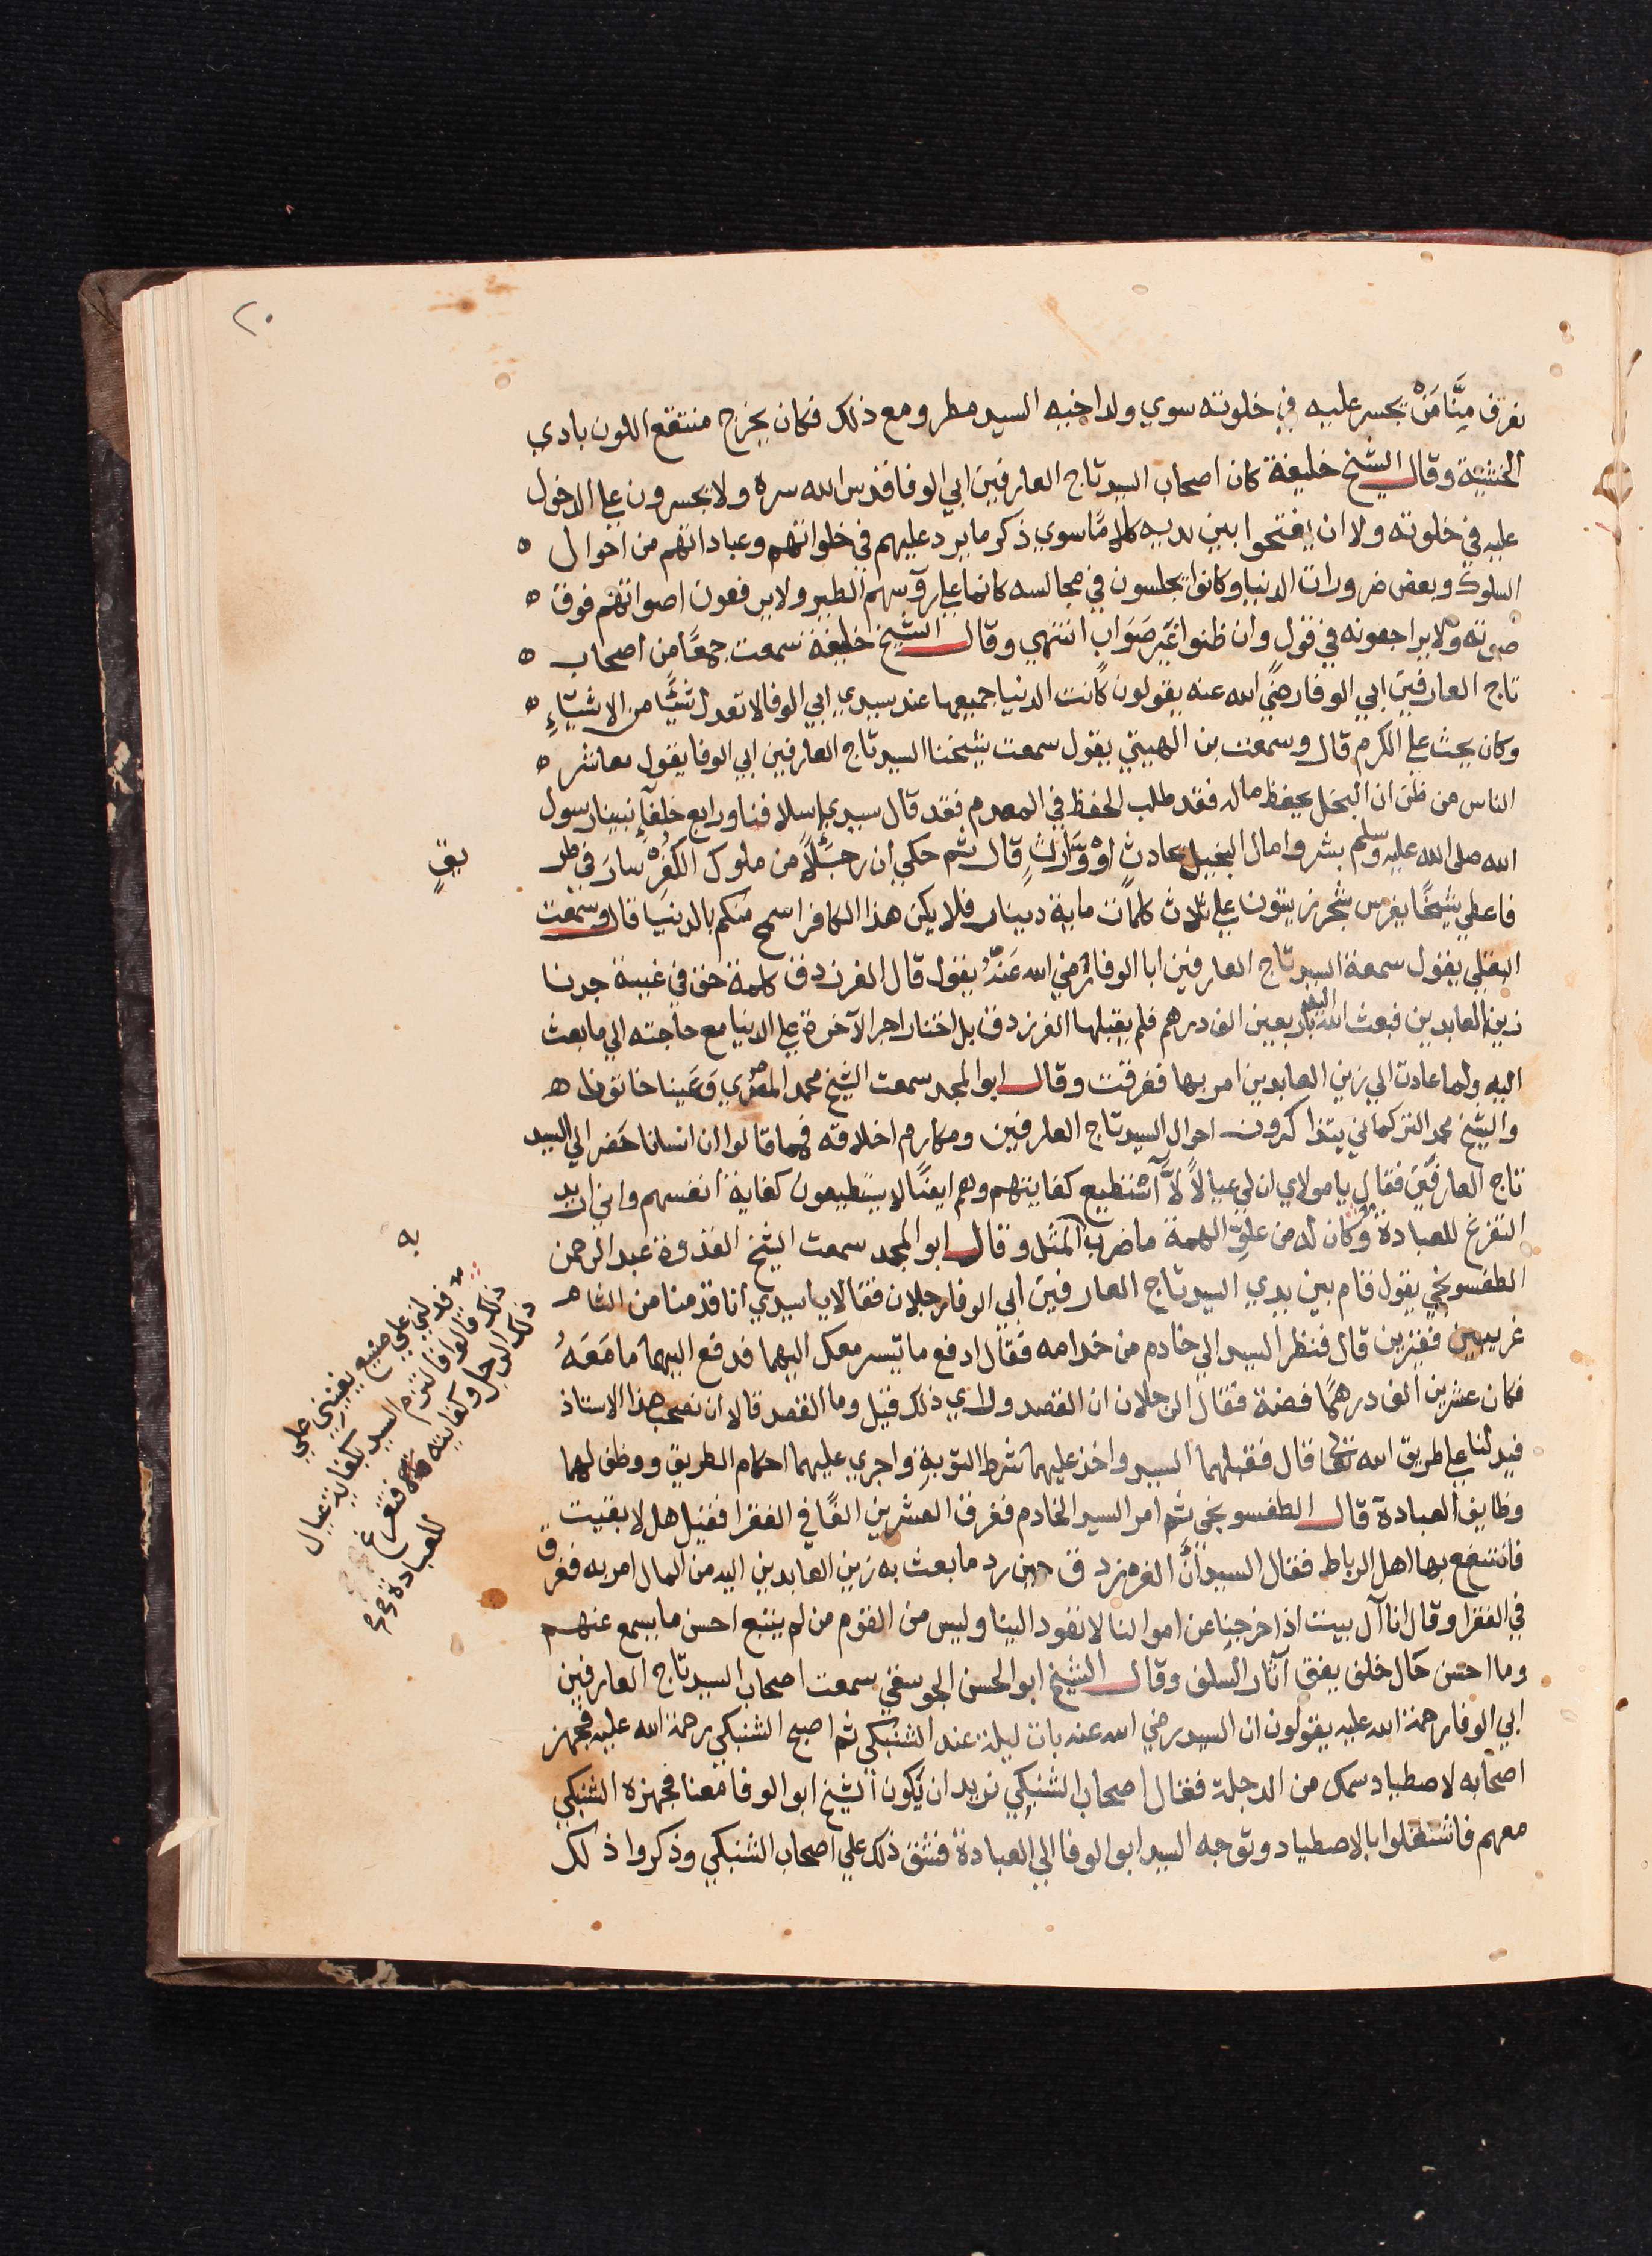 ٢٠
نعرف مِنَّا مَنْ يجسر عليه في خلوته سوي ولد اخيه السيد مطر ومع ذلك فكان يخرج منتقع اللون بادي
الخشية وقال الشيخ خليفة كان اصحاب السيد تاج العارفين ابي الوفا قدس الله سره ولا يجسرون علي الدخول
عليه في خلوته ولا ان يفتحوا بين يديه كلامًا سوي ذكر ما يرد عليهم في خلواتهم وعباداتهم من احوال ه
السلوك وبعض ضرورات الدنيا وكانوا يجلسون في مجالسه كانما علي رؤسهم الطير ولا يرفعون اصواتهم فوق ه
صوته ولا يراجعونه في قول وان ظنوا غير صَوَاب انتهي وقال الشيخ خليفة سمعت جمعًا من اصحاب ه
تاج العارفين ابي الوفا رضي الله عنه يقولون كانت الدنيا جميعها عند سيدي ابي الوفا لا تعدل شيًّا من الاشيآءِ ه
وكان يحث علي الكرم قال وسمعت بن الهيتي يقول سمعت شيخنا السيد تاج العارفين ابي الوفا يقول معاشر ه
الناس من ظن ان البخل يحفظ ماله فقد طلب الحفظ في المعدم فقد قال سيدي اسلافنا ورابع خلفآءِ نبينا رسول
الله صلي الله عليه وسلم بشروا مال البخيل بحادثٍ اوْ وَارثٍ قال ثم حكي ان رجلًا من ملوك الكفره سارَ في طر
يقٍ
فاعطي شيخًا يغرس شجر زيتون علي ثلاث كلمات ماية دينار فلا يكن هذا الكافر اسمح منكم بالدنيا قال وسمعت
البقلي يقول سمعة السيد تاج العارفين ابا الوفا رضي الله عَنْهُ يقول قال الفرزدق كلمة حق في غيبة جدنا
زين العابدين فبعث اليه باربعين الف درهم فلم يقبلها الفرزدق بل اختار اجر الآخرة علي الدنيا مع حاجته الي ما بعث
اليه ولما عادت الي زين العابدين امر بها ففرقت وقال ابو المجد سمعت الشيخ محمد المصري وَعَينا خاتون ه
والشيخ محمد التركماني يتذاكرون احوال السيد تاج العارفين ومكارم اخلاقه فمما قالوا ان انسانا حَضر الي السيد
تاج العارفين فقال يا مولاي ان لي عيالًا لا آستطيع كفايتهم وهم ايضًا لا يستطيعون كفاية انفسهم واني اريد
التفرغ للعبادة وكان له من علوّ الهمة ما ضرب المثل وقال ابو المجد سمعت الشيخ القدوة عبد الرحمن
الطفسونجي يقول قام بين يدي السيد تاج العارفين ابي الوفا رجلان فقالا يا سيدي انا قدمنا من الشام
غريبين فقيرين قال فنظر السيد الي خادم من خدامه فقال ادفع ما تيسر معك اليهما فدفع اليهما ما مَعَهُ
فكان عشرين الف درهمًا فضة فقال الرجلان ان القصد ورآي ذلك قيل وما القصد قالا ان نصحب هذا الاستاذ
فيدلنا علي طريق الله تعالي قال فقبلهما السيد واخذ عليهما شرط التوبة واجري عليهما احكام الطريق ووظف لهما
وظايف العبادة قال الطفسونجي ثم امر السيد الخادم ففرق العشرين الفًا في الفقرا فقيل هل لا بقيت
فانتفع بها اهل الرباط فقال السيد انَّ الفرزدق حين رد ما بعث به زين العابدين اليه من المال امر به ففرق
في الفقرا وقال انا آل بيت اذا خرجنا عن اموالنا لا نعود الينا وليس من القوم من لم يتبع احسن ما يسمع عنهم
وما احسن حَال خلف يقفوا آثار السلف وقال الشيخ ابو الحسن الجوسقي سمعت اصحاب السيد تاج العارفين
ابي الوفا رحمة الله عليه يقولون ان السيد رضي الله عنه بات ليلة عند الشنبكي ثم اصبح الشنبكي رحمة الله عليه فجهز
اصحابه لاصطياد سمك من الدجلة فقال اصحاب الشنبكي نريد ان يكون الشيخ ابو الوفا معنا فجهزه الشنبكي
معهم فاشتغلوا بالاصطياد وتوجه السيد ابو الوفا الي العبادة فشق ذلك علي اصحاب الشنبكي وذكروا ذلك
به
فدلني علي صنيع يعينني علي
ذلك قالوا فالتزم السيد بكفاية عيال
ذلك الرجل وكفايته فتفرغ
للعبادة